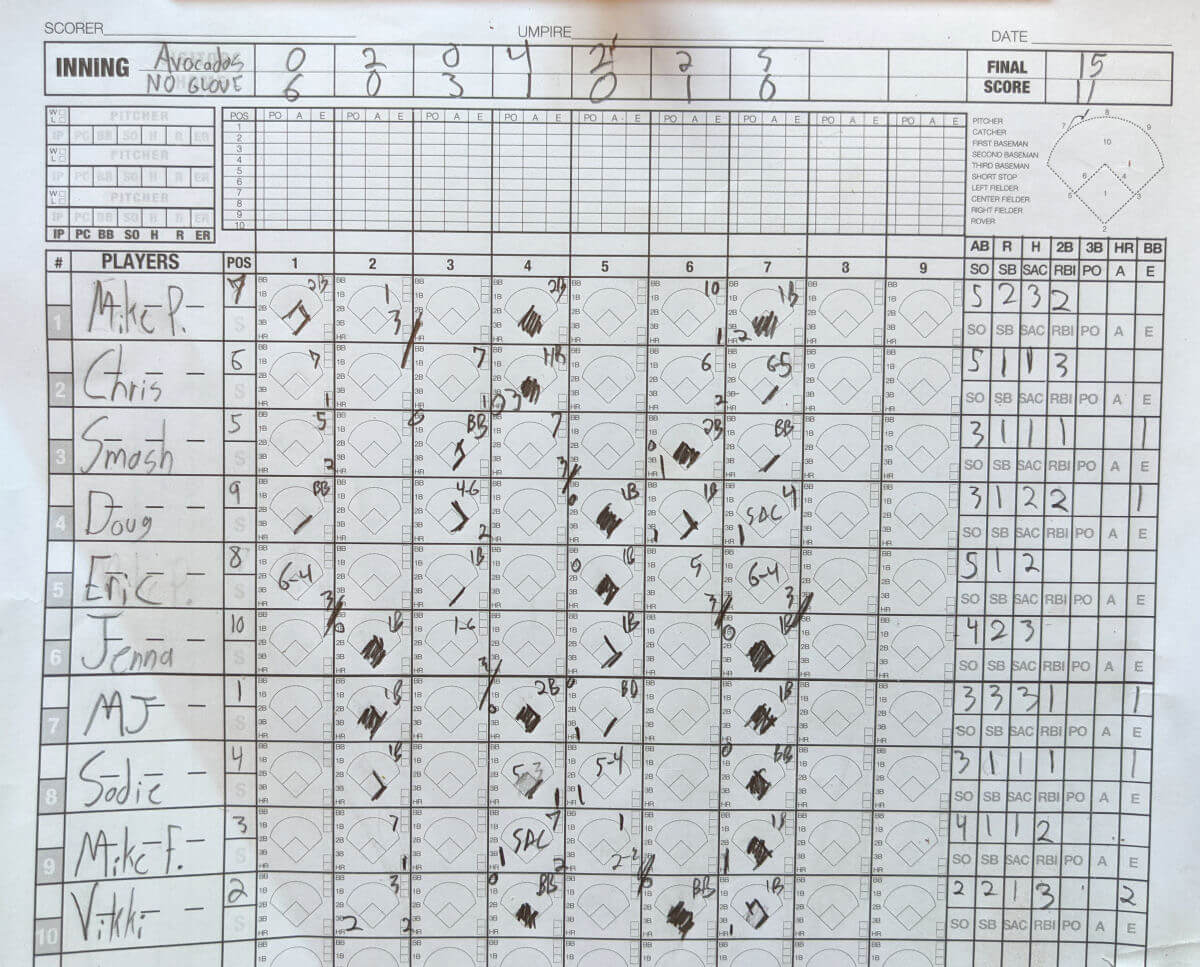 SCORER UMPIRE DATE
INNING Avocados 0 2 0 4 2 2 5 FINAL 15
NO GLOVE 6 0 3 1 0 1 0 SCORE 11
W L PITCHER POS PO A E PO A E PO A E PO A E PO A E PO A E PO A E PO A E PO A E
IP PC BB SO H R ER
W L PITCHER
IP PC BB SO H R ER
W L PITCHER
IP PC BB SO H R ER
IP PC BB SO H R ER
1
2
3
4
5
6
7
8
9
10
PITCHER
CATCHER
FIRST BASEMAN
SECOND BASEMAN
THIRD BASEMAN
SHORT STOP
LEFT FIELDER
CENTER FIELDER
RIGHT FIELDER
ROVER
7 8 9
10
6 4
5 1 3
2
AB R H 2B 3B HR BB
# PLAYERS POS 1 2 3 4 5 6 7 8 9 SO SB SAC RBI PO A E
1 Mike P. 7 2B 1 3 2B 10 1 1B 2 5 2 3 2
SO SB SAC RBI PO A E
2 Chris 6 7 1 7 1 HR 3 6 2 6-5 5 1 1 3
SO SB SAC RBI PO A E
3 Smash 5 5 2 BB 7 3 2B 1 BB 3 1 1 1 1
SO SB SAC RBI PO A E
4 Doug 9 BB 4-6 2 1B 1B 1 SAC 4 1 3 1 2 2 1
SO SB SAC RBI PO A E
5 Eric 8 6-4 3 1B 1B 5 3 6-4 3 5 1 2
SO SB SAC RBI PO A E
6 Jenna 10 1B 1-6 3 1B 1B 4 2 3
SO SB SAC RBI PO A E
7 MJ 1 1B 2B BB 1 1B 3 3 3 1 1
SO SB SAC RBI PO A E
8 Sadie 4 1B 5-3 1 5-4 1 BB 3 1 1 1 1
SO SB SAC RBI PO A E
9 Mike F. 3 7 1 SAC 7 1 2 1 1B 1 4 1 1 2
SO SB SAC RBI PO A E
10 Vikki 2 3 2 2 BB BB 1B 1 2 2 1 3 2
SO SB SAC RBI PO A E